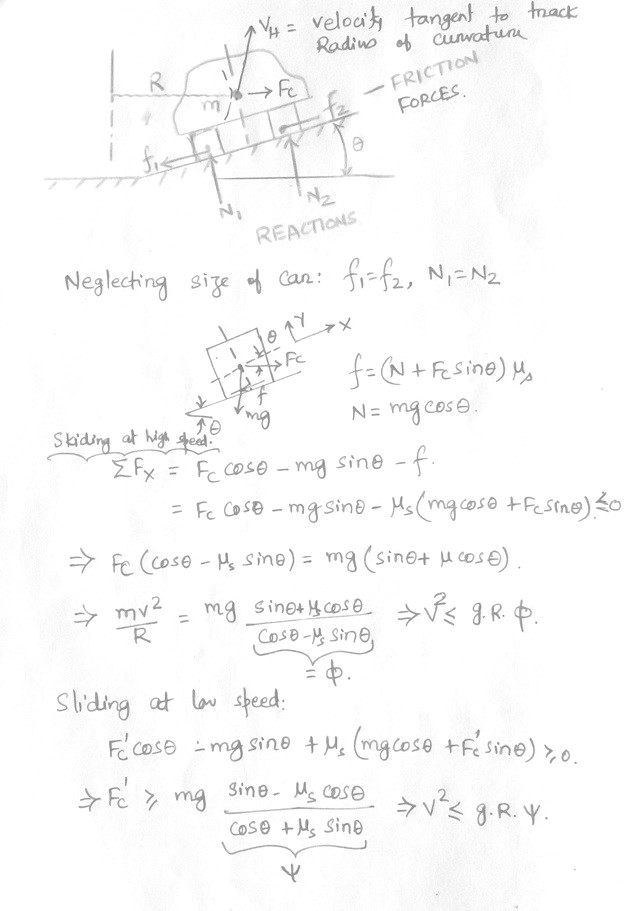 V_H = velocity tangent to track
Radius of curvature
R
m
Fc
f2
FRICTION
FORCES.
f1
θ
N1
N2
REACTIONS
Neglecting size of car: f1=f2, N1=N2
θ
Y
X
Fc
f
mg
θ
f=(N+Fc sinθ) μs
N= mg cosθ.
Skiding at high speed:
ΣFx = Fc cosθ - mg sinθ - f.
= Fc cosθ - mg sinθ - μs(mg cosθ + Fc sinθ) ≤ 0
⇒ Fc (cosθ - μs sinθ) = mg (sinθ + μ cosθ).
⇒ mv²/R = mg (sinθ + μs cosθ)/(cosθ - μs sinθ) ⇒ V² ≤ g.R. φ.
= φ.
Sliding at low speed:
Fc' cosθ - mg sinθ + μs (mg cosθ + Fc' sinθ) ≥ 0.
⇒ Fc' ≥ mg (sinθ - μs cosθ)/(cosθ + μs sinθ) ⇒ V² ≤ g.R. ψ.
ψ